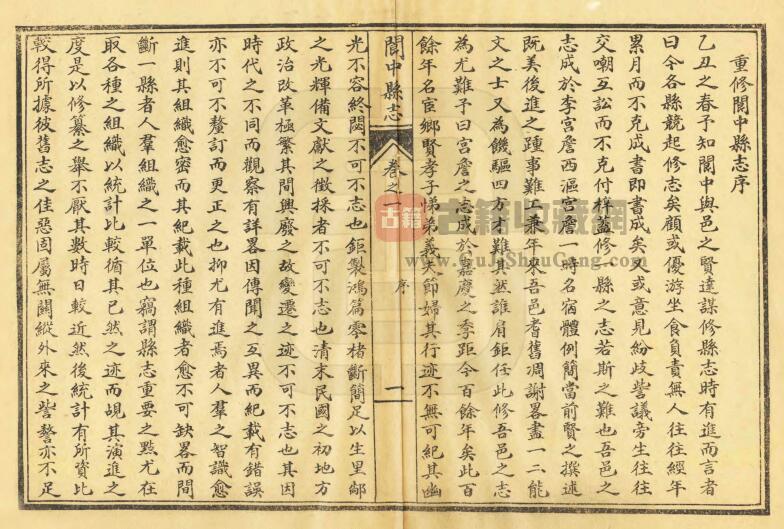 重修閬中縣志序
乙丑之春予知閬中與邑之賢達謀修縣志時有進而言者
曰今各縣競起修志矣顧或優游坐食負責無人往往經年
累月而不克成書即書成矣又或意見紛歧訾議旁生往往
交嘲互訟而不克付梓蓋修一縣之志若斯之難也吾邑之
志成於李宮詹西漚宮詹一時名宿體例簡當前賢之撰述
既美後進之踵事難工兼年來吾邑耆舊凋謝畧盡一二能
文之士又為饑驅四方才難其然誰肩鉅任此修吾邑之志
為尤難予曰宮詹之志成於嘉慶之季距今百餘年矣此百
餘年名宦鄉賢孝子悌弟義夫節婦其行迹不無可紀其幽
閬中縣志
卷之一
序
一
光不容終閟不可不志也鉅製鴻篇零楮斷簡足以生里鄰
之光輝備文獻之徵採者不可不志也清末民國之初地方
政治改革極繁其間興廢之故變遷之迹不可不志也其因
時代之不同而觀察有詳畧因傳聞之互異而紀載有錯誤
亦不可不釐訂而更正之也抑尤有進焉者人羣之智識愈
進則其組織愈密而其紀載此種組織者愈不可缺畧而間
斷一縣者人羣組織之一單位也竊謂縣志重要之點尤在
取各種之組織以統計比較循其已然之迹而覘其演進之
度是以修纂之舉不厭其數時日較近然後統計有所資比
較得所據彼舊志之佳惡固屬無關縱外來之訾謷亦不足
古籍
古籍收藏網
www.GuJiShouCang.com